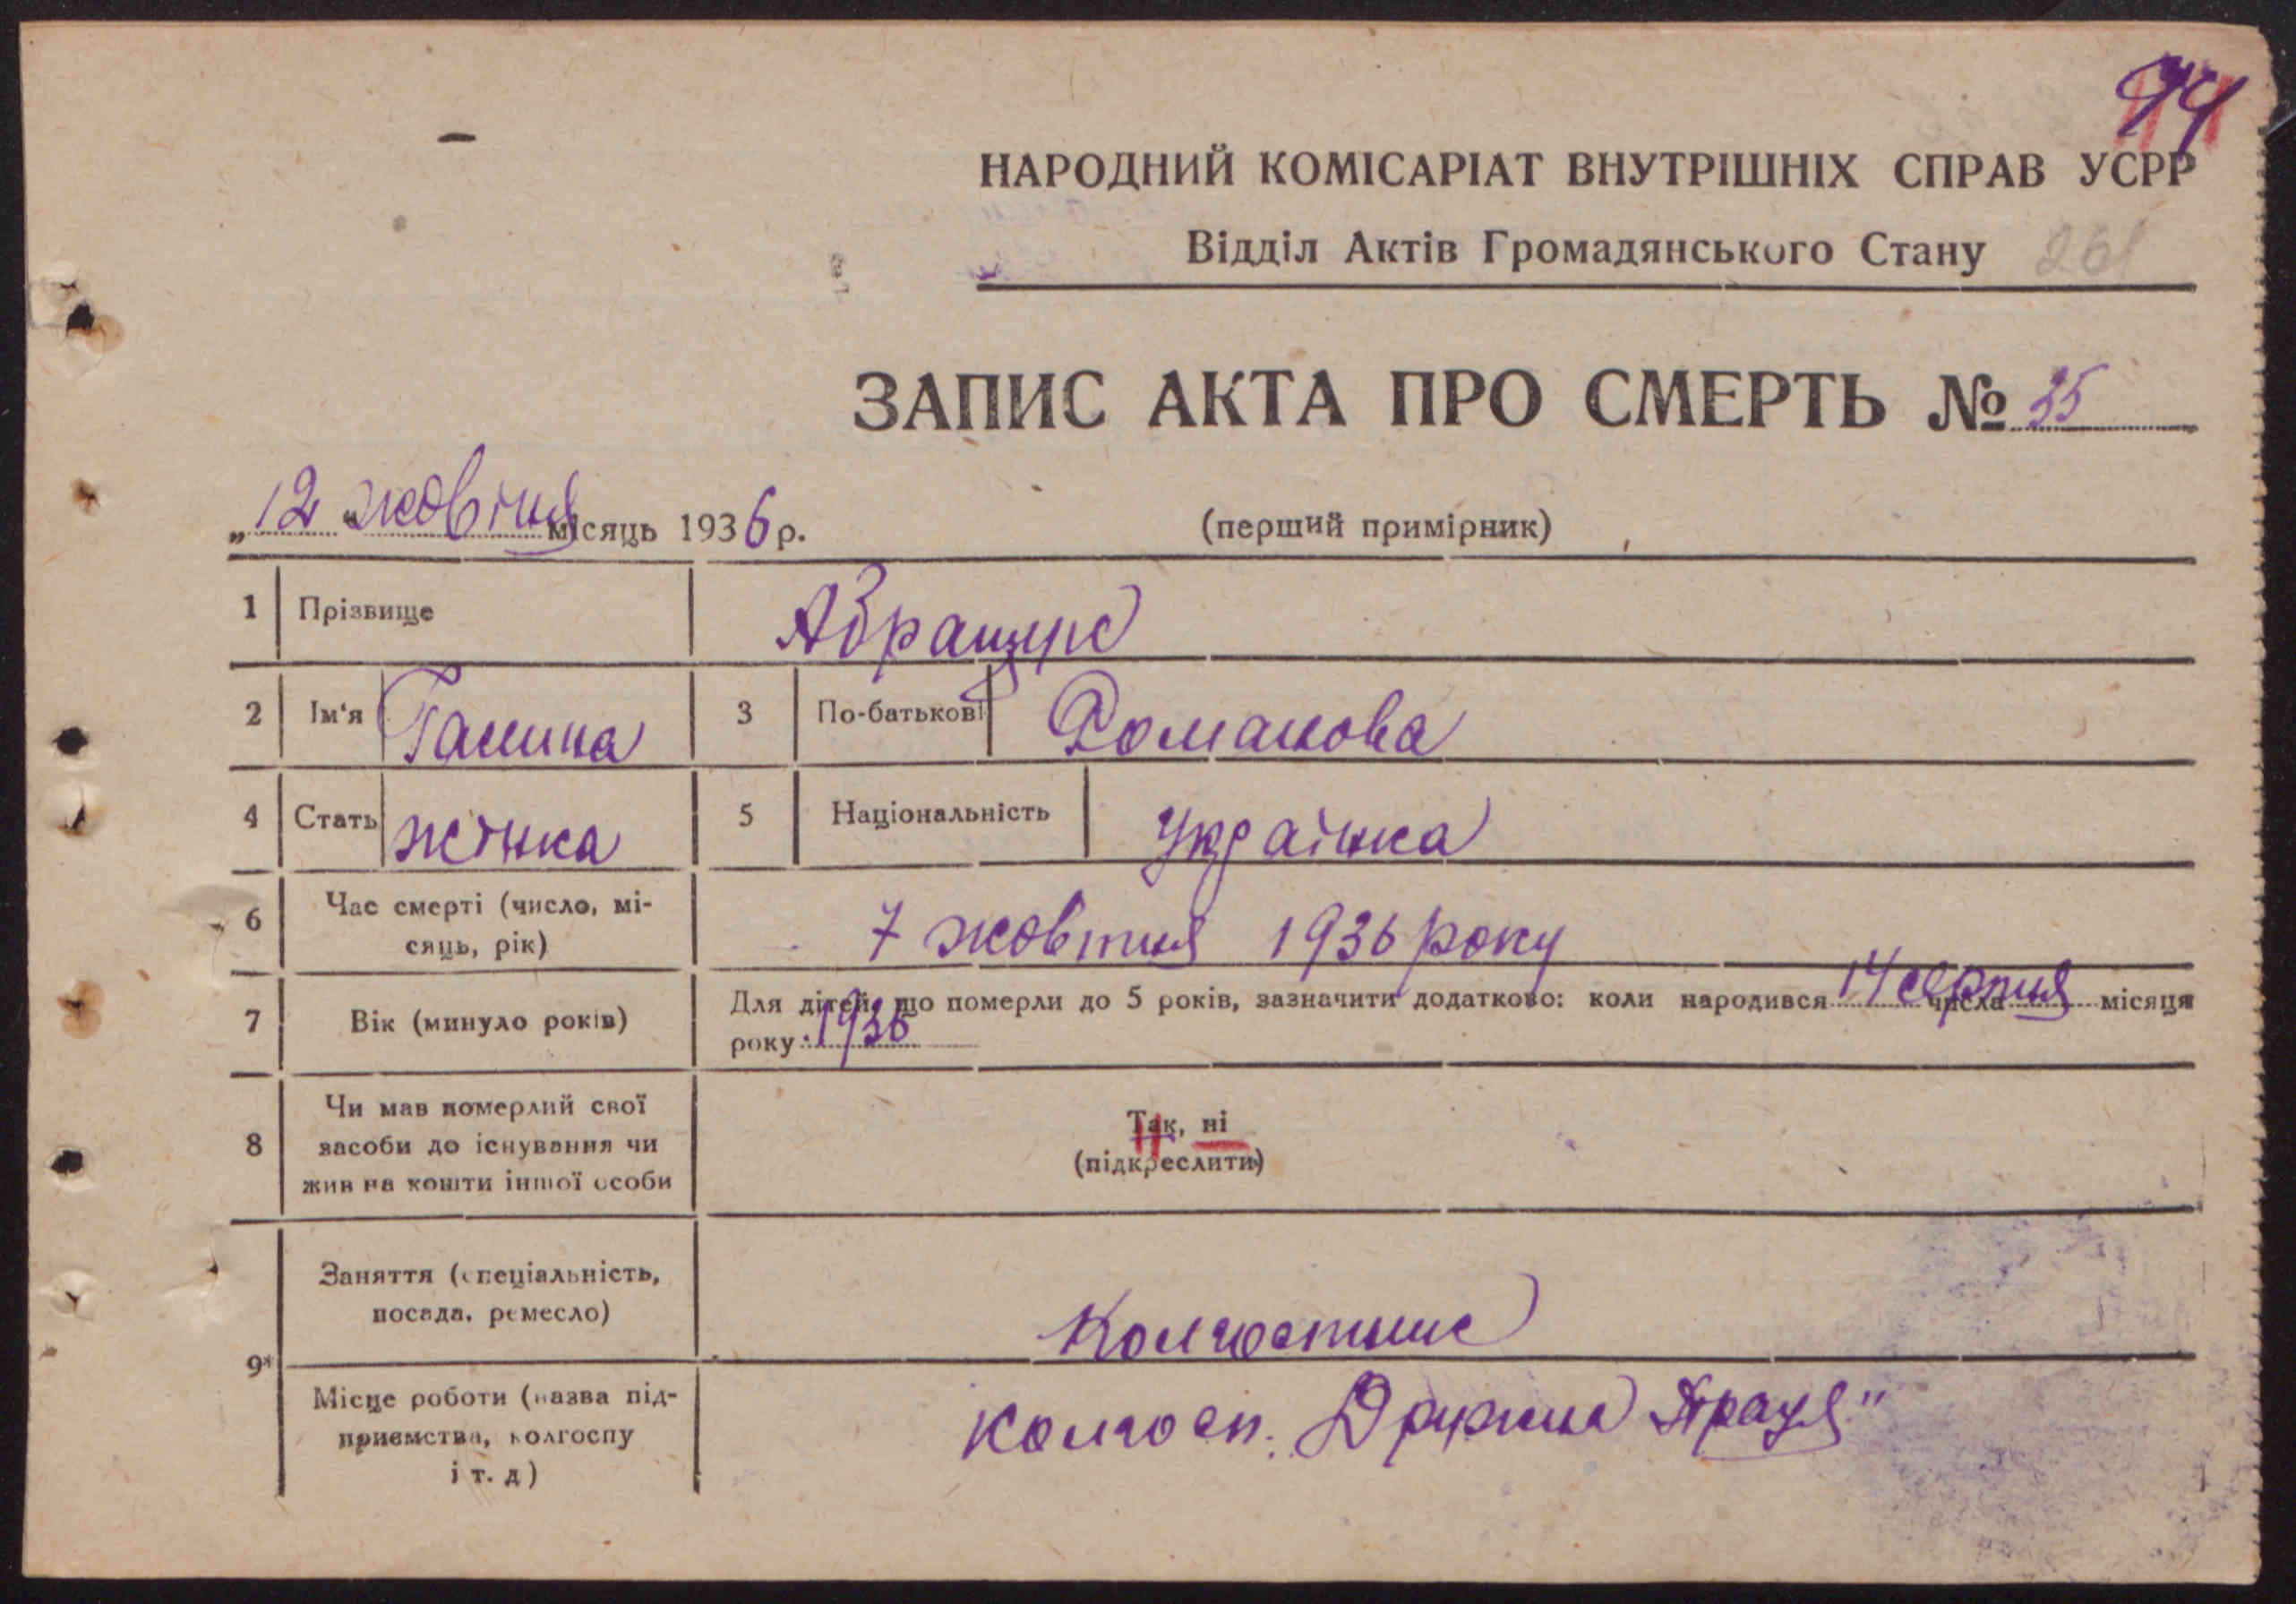 44
НАРОДНИЙ КОМІСАРІАТ ВНУТРІШНІХ СПРАВ УСРР
Відділ Актів Громадянського Стану 261
ЗАПИС АКТА ПРО СМЕРТЬ № 35
„12" жовтня місяць 1936 р.
(перший примірник)
1 Прізвище
2 Ім'я Галина 3 По-батькові Романова
4 Стать жінка 5 Національність Українка
6 Час смерті (число, мі-
сяць, рік) 7 жовтня 1936 року
7 Вік (минуло років) Для дітей, що померли до 5 років, зазначити додатково: коли народився 14 числа серпня місяця
року 1936
8 Чи мав померлий свої
засоби до існування чи
жив на кошти іншої особи
Так, ні
(підкреслити)
9* Заняття (спеціальність,
посада, ремесло) Колгостник
Місце роботи (назва під-
приємства, колгоспу
і т. д) колгосп. Дружна Праця"